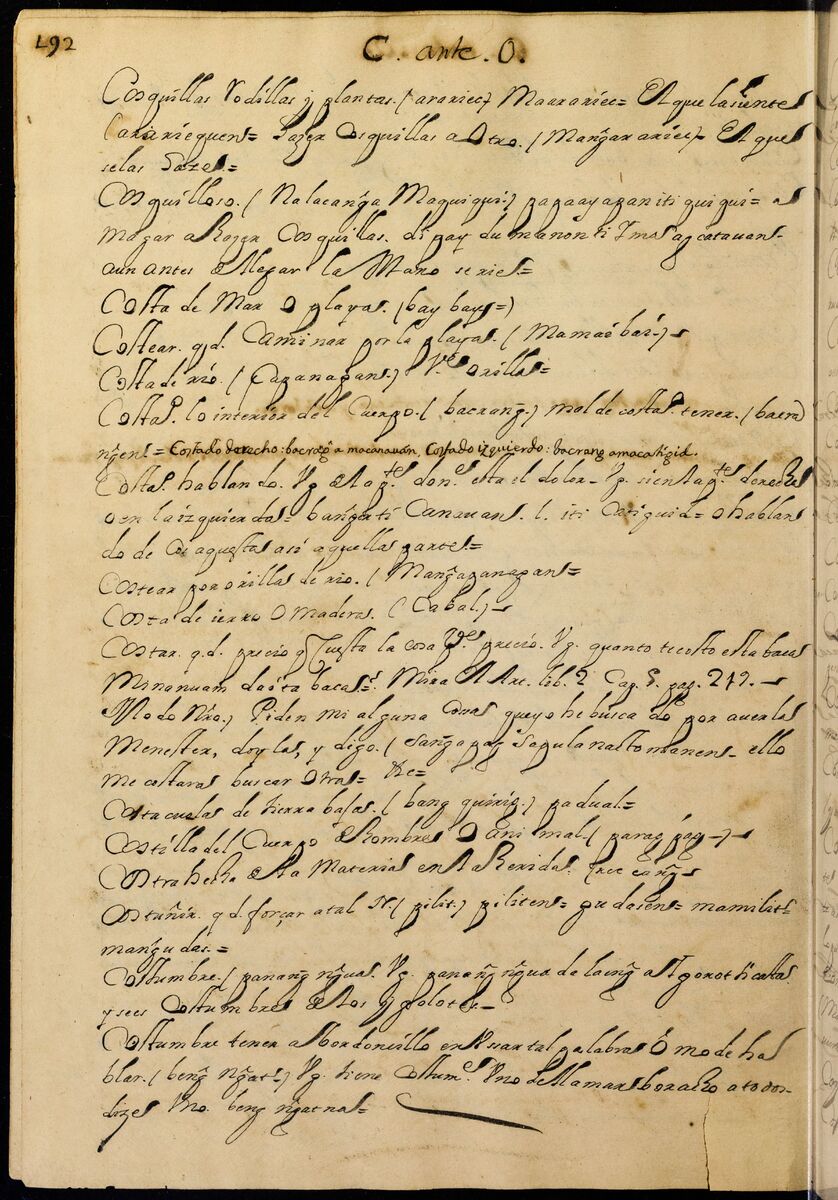 192
C. ante. O.
Cosquillas Rodillas y plantas. (ararieeɟ) Maararieec= El que las siente
(ararieequen= hazer Cosquillas a Otro. (Manḡararieec)= El que
selas haze.=
Cosquilloso. (Nalacanḡa Maquiqui.) papaayapan iti quiqui= a
magar a hazer Cosquillas. di pay dumanon ti Yma agcatauan=
aun antes de llegar la Mano se rie=
Costa de Mar O playa. (bay bay=)
Costear. q.d. Caminar por la playa. (Mamaȯbai.)
Costa de rio. (Capanapan.) Ve orilla=
Costado. lo interior del Cuerpo. (bacranḡ.) mal de costado. tener. (bacra
nḡen= Costado derecho: bacrang a macanauan. Costado izquierdo: bacrang amacatigid.
Costado. hablando. Vg. de la pte. donde esta el dolor. Vg. sienta pte. derecha
o en la izquierda= banḡerti Canauan. l. iti Catiguid= o hablan
do de Cosa questa asi aquella parte=
Costear por orilla de rio. (Manḡapanapan=
Costa de ierro O madera. (Cabal.)
Costar. q.d. precio q Cuesta la cosa Ve. precio. Vg. quanto te costo esta baca
Minánuam daita baca? Mira el Art. lib. 2 Cap. 5. pag. 212.
Modo Nro.) Piden mi alguna Cosa que yo he busca do por auerlas
Menester, doylas, y digo. (sanḡapay sapulanatto manen= ello
me costara buscar Otra=
Costa cuelas de tierra baja. (bang quirig.) padual=
Costilla del Cuerpo de hombre O Animal. (parag pag.)
Costra hecha de la Materia en la herida.
Costuñir. q.d. forçar atal N. (pilit.) piliten= gudasen= mamilit=
manḡudas.=
Costumbre. (pananḡ nḡgua. Vg. pananḡ nḡgua dalainḡ a Ygorot ti casta
y sees Costumbre de los Ygolote.
Costumbre tener a bordoncillo en Vsar tal palabra O modo de ha
blar. (benḡ nḡat.) Vg. tiene Costume. Vno de llamar boracho a todos
dize Vno. benḡ nḡatna=